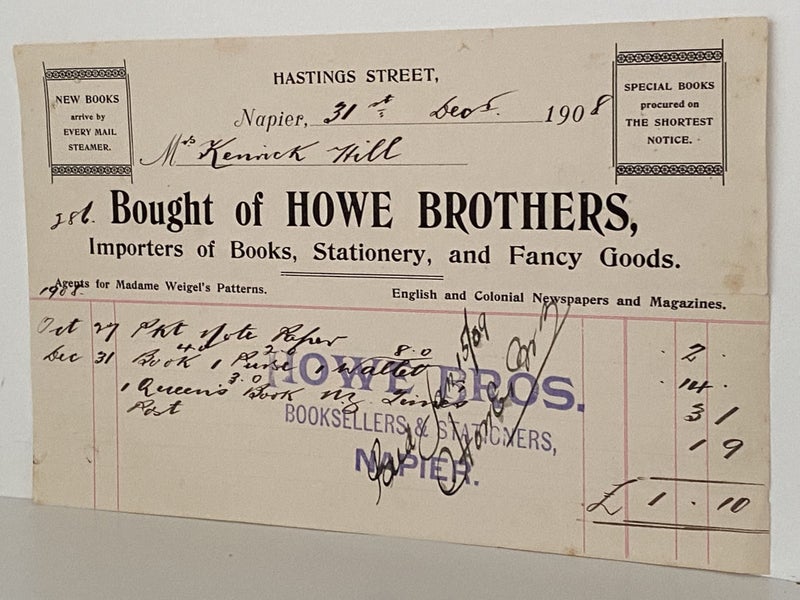 HASTINGS STREET,
NEW BOOKS
arrive by
EVERY MAIL
STEAMER.
SPECIAL BOOKS
procured on
THE SHORTEST
NOTICE.
Napier, 31st Decr. 1908
Mrs Kenrick Hill
286. Bought of HOWE BROTHERS,
Importers of Books, Stationery, and Fancy Goods.
Agents for Madame Weigel's Patterns.
English and Colonial Newspapers and Magazines.
1908.
Oct 27 Pkt Note Paper 2 .
4.0 2.0 8.0
Dec 31 Book 1 Purse 1 Wallet 14 .
3.0
1 Queen's Book N.Z. Times 3 1
Post 1 9
£ 1 . . 10
HOWE BROS.
BOOKSELLERS & STATIONERS,
NAPIER.
Paid